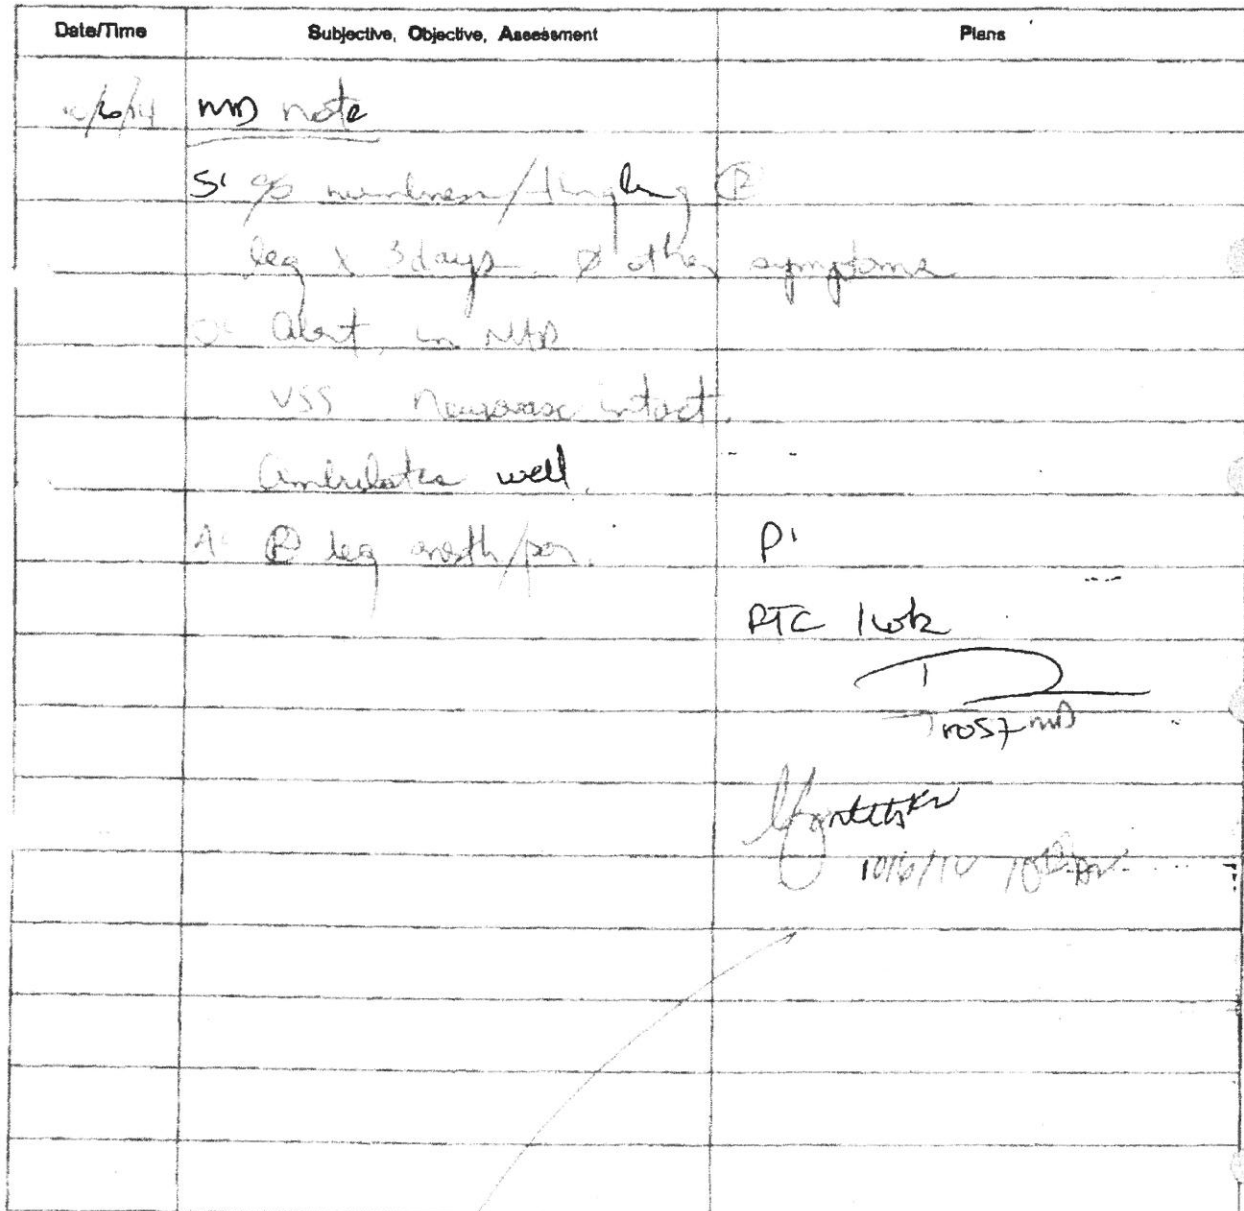 Date/Time Subjective, Objective, Assessment Plans
10/6/14 MD note
S: c/o numbness/tingling Ⓡ
leg x 3 days. Ø other symptoms
O: Alert, in NAD
VSS Neurovasc intact.
Ambulates well.
A: Ⓡ leg P:
RTC 1 wk
Trost MD
10/6/14